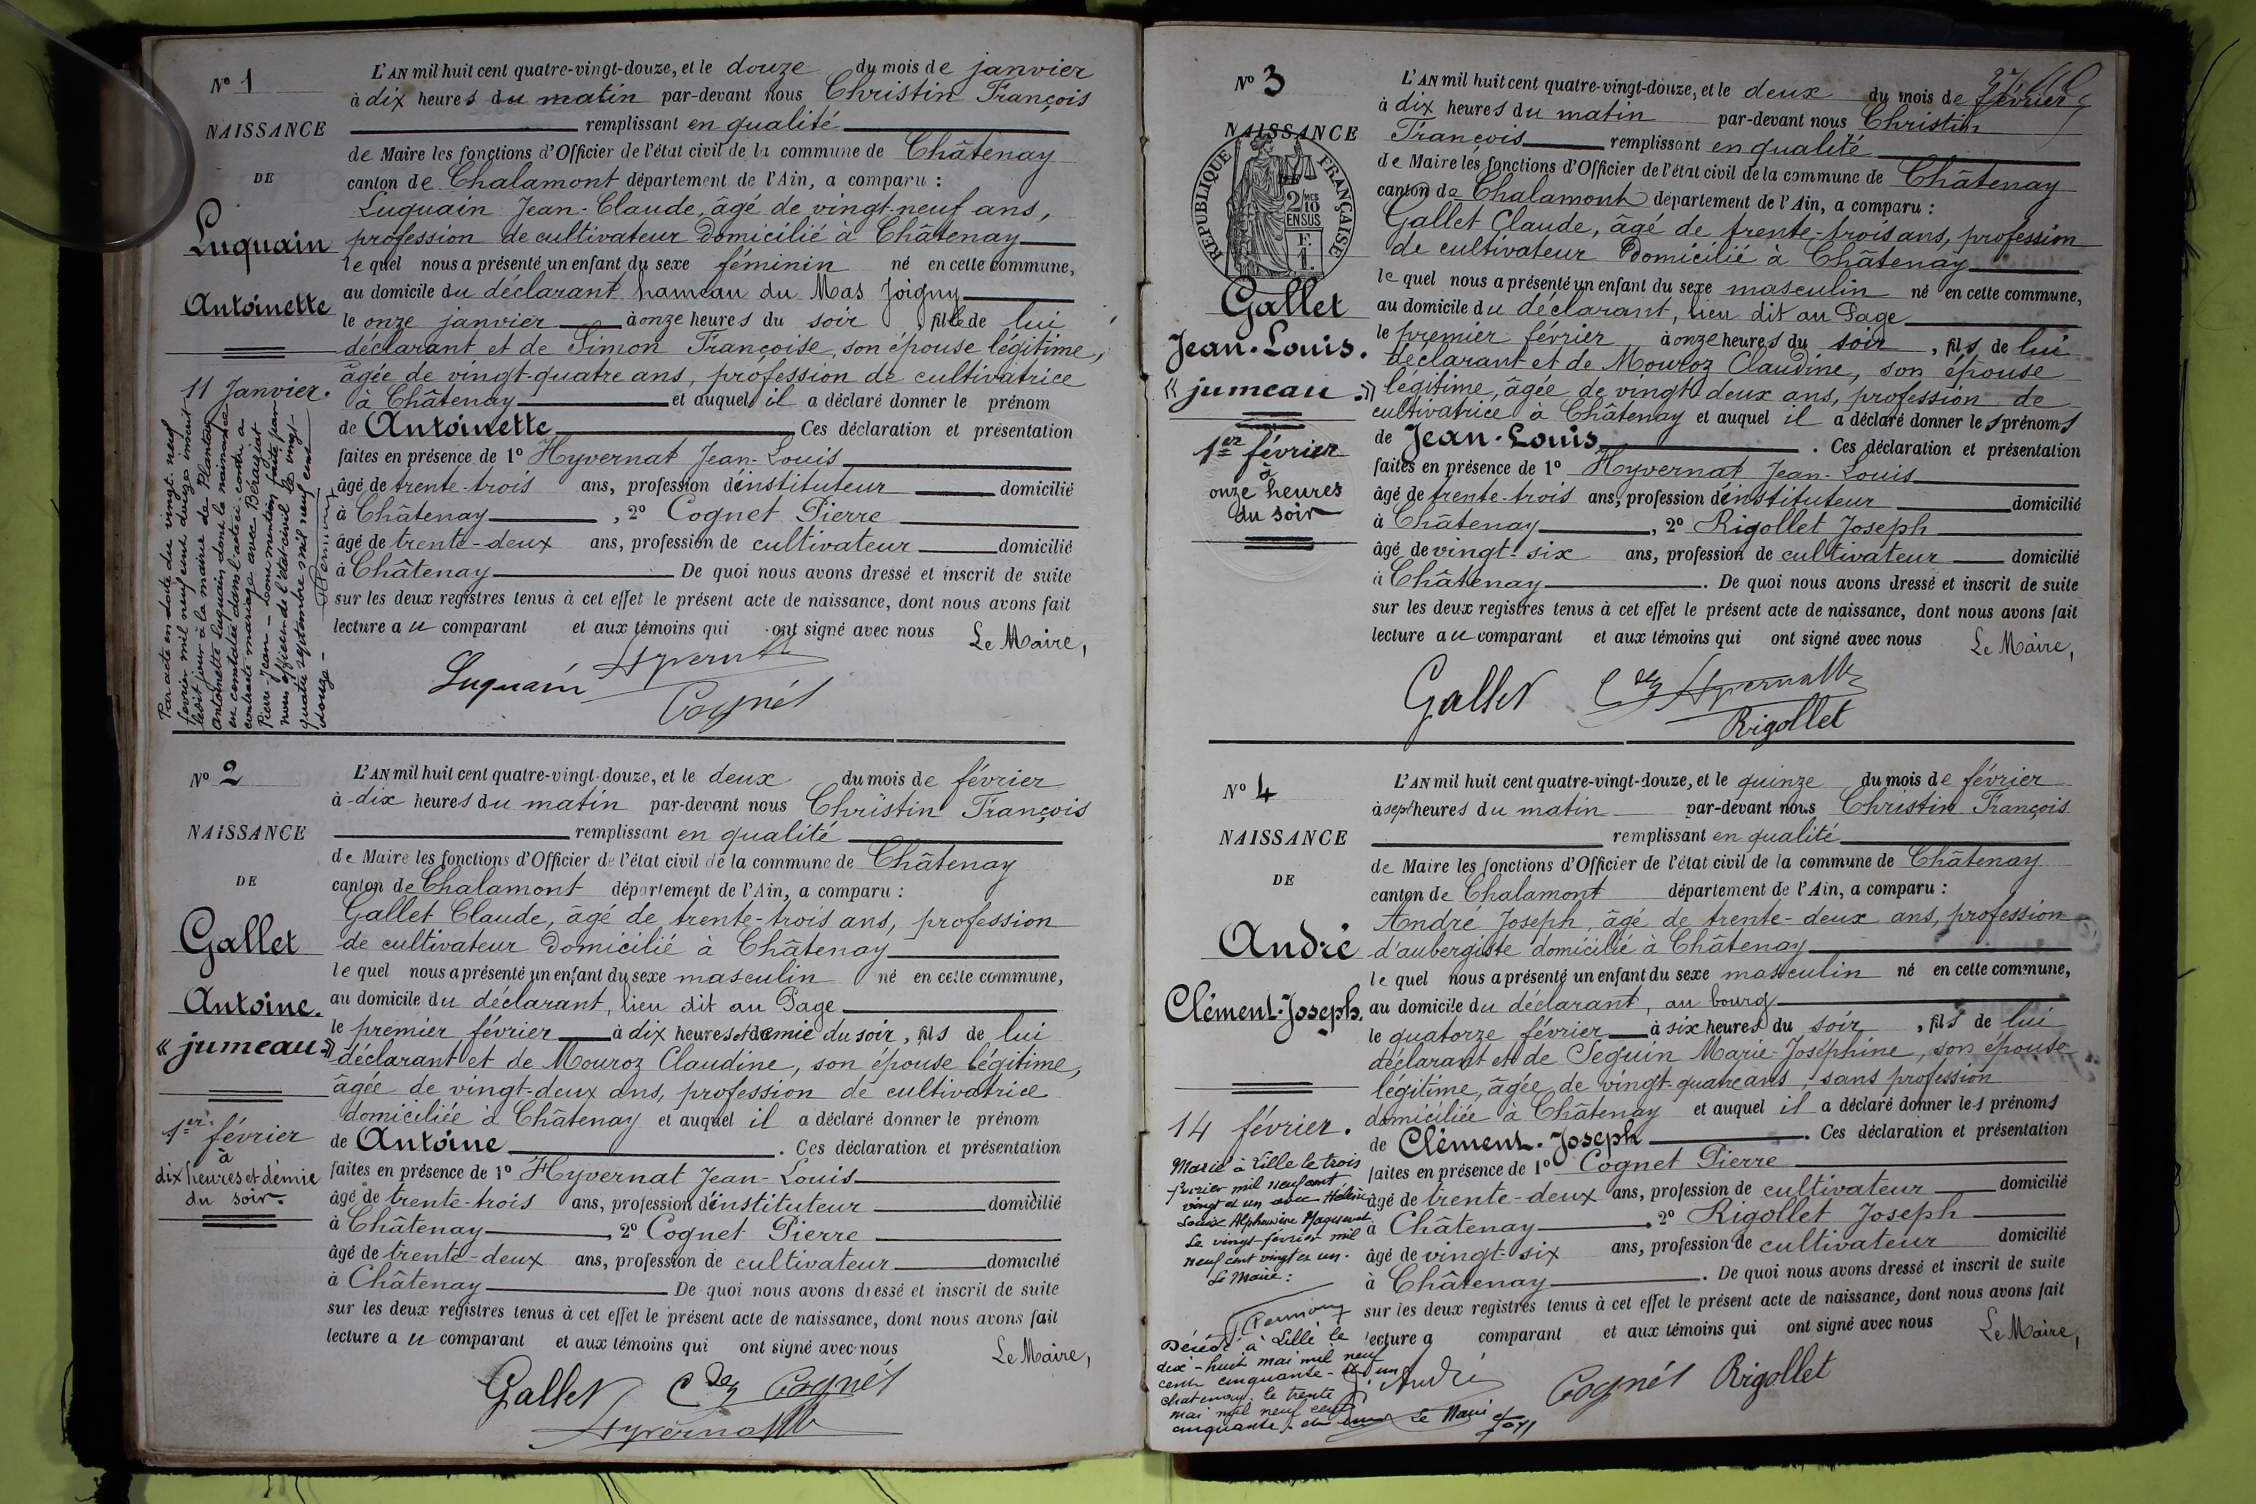 N° 1
NAISSANCE
DE
Luquain
Antoinette
11 Janvier.
Par acte en date du vingt-neuf
février mil neuf cent douze inscrit
ledit jour à la mairie de Plantay
Antoinette Luquain dont la naissance
en constatée dans l'acte ci-contre a
contracté mariage avec Béraziat
Pierre-Jean - Dont mention faite par
nous officier de l'état civil le vingt
quatre septembre mil neuf cent
douze -
L'AN mil huit cent quatre-vingt-douze, et le douze du mois de janvier
à dix heures du matin par-devant nous Christin François
remplissant en qualité
de Maire les fonctions d'Officier de l'état civil de la commune de Châtenay
canton de Chalamont département de l'Ain, a comparu :
Luquain Jean-Claude, âgé de vingt-neuf ans,
profession de cultivateur domicilié à Châtenay
le quel nous a présenté un enfant du sexe féminin né en cette commune,
au domicile du déclarant hameau du Mas Joigny
le onze janvier à onze heures du soir , fille de lui
déclarant et de Simon Françoise, son épouse légitime,
âgée de vingt-quatre ans, profession de cultivatrice
à Châtenay et auquel il a déclaré donner le prénom
de Antoinette Ces déclaration et présentation
faites en présence de 1° Hyvernat Jean-Louis
âgé de trente-trois ans, profession d'instituteur domicilié
à Châtenay , 2° Cognet Pierre
âgé de trente-deux ans, profession de cultivateur domicilié
à Châtenay De quoi nous avons dressé et inscrit de suite
sur les deux registres tenus à cet effet le présent acte de naissance, dont nous avons fait
lecture au comparant et aux témoins qui ont signé avec nous Le Maire,
Luquain Hyvernat
Cognét
N° 2
NAISSANCE
DE
Gallet
Antoine.
« jumeau »
1er février
à
dix heures et démie
du soir.
L'AN mil huit cent quatre-vingt-douze, et le deux du mois de février
à dix heures du matin par-devant nous Christin François
remplissant en qualité
de Maire les fonctions d'Officier de l'état civil de la commune de Châtenay
canton de Chalamont département de l'Ain, a comparu :
Gallet Claude, âgé de trente-trois ans, profession
de cultivateur domicilié à Châtenay
le quel nous a présenté un enfant du sexe masculin né en cette commune,
au domicile du déclarant, lieu dit au Page
le premier février à dix heures et demie du soir, fils de lui
déclarant et de Mouroz Claudine, son épouse légitime,
âgée de vingt-deux ans, profession de cultivatrice
domiciliée à Châtenay et auquel il a déclaré donner le prénom
de Antoine . Ces déclaration et présentation
faites en présence de 1° Hyvernat Jean-Louis
âgé de trente-trois ans, profession d'instituteur domicilié
à Châtenay , 2° Cognet Pierre
âgé de trente-deux ans, profession de cultivateur domicilié
à Châtenay De quoi nous avons dressé et inscrit de suite
sur les deux registres tenus à cet effet le présent acte de naissance, dont nous avons fait
lecture au comparant et aux témoins qui ont signé avec nous Le Maire,
Gallet Cognét
Hyvernat
N° 3
NAISSANCE
REPUBLIQUE FRANÇAISE
2/10 MES
EN SUS
Gallet
Jean-Louis.
« jumeau »
1er février
à
onze heures
du soir
L'AN mil huit cent quatre-vingt-douze, et le deux du mois de février
à dix heures du matin par-devant nous Christin
François remplissant en qualité
de Maire les fonctions d'Officier de l'état civil de la commune de Châtenay
canton de Chalamont département de l'Ain, a comparu :
Gallet Claude, âgé de trente-trois ans, profession
de cultivateur domicilié à Châtenay
le quel nous a présenté un enfant du sexe masculin né en cette commune,
au domicile du déclarant, lieu dit au Page
le premier février à onze heures du soir , fils de lui
déclarant et de Mouroz Claudine, son épouse
légitime, âgée de vingt-deux ans, profession de
cultivatrice à Châtenay et auquel il a déclaré donner les prénoms
de Jean-Louis . Ces déclaration et présentation
faites en présence de 1° Hyvernat Jean-Louis
âgé de trente-trois ans, profession d'instituteur domicilié
à Châtenay , 2° Rigollet Joseph
âgé de vingt-six ans, profession de cultivateur domicilié
à Châtenay . De quoi nous avons dressé et inscrit de suite
sur les deux registres tenus à cet effet le présent acte de naissance, dont nous avons fait
lecture au comparant et aux témoins qui ont signé avec nous Le Maire,
Gallet Hyvernat
Rigollet
N° 4
NAISSANCE
DE
André
Clément-Joseph.
14 février.
Marié à Lille le trois
février mil neuf cent
vingt et un avec Hélène
Louise Alphonsine
Le vingt février mil
neuf cent vingt et un.
Le Maire :
Décédé à Lille le
dix-huit mai mil neuf
cent cinquante-et un
Chatenay le trente
mai mil neuf cent
cinquante et un Le Maire
L'AN mil huit cent quatre-vingt-douze, et le quinze du mois de février
à sept heures du matin par-devant nous Christin François
remplissant en qualité
de Maire les fonctions d'Officier de l'état civil de la commune de Châtenay
canton de Chalamont département de l'Ain, a comparu :
André Joseph, âgé de trente-deux ans, profession
d'aubergiste domicilié à Châtenay
le quel nous a présenté un enfant du sexe masculin né en cette commune,
au domicile du déclarant, au bourg
le quatorze février à six heures du soir , fils de lui
déclarant et de Seguin Marie-Joséphine, son épouse
légitime, âgée de vingt-quatre ans, sans profession
domiciliée à Châtenay et auquel il a déclaré donner les prénoms
de Clément-Joseph . Ces déclaration et présentation
faites en présence de 1° Cognet Pierre
âgé de trente-deux ans, profession de cultivateur domicilié
à Châtenay , 2° Rigollet Joseph
âgé de vingt-six ans, profession de cultivateur domicilié
à Châtenay . De quoi nous avons dressé et inscrit de suite
sur les deux registres tenus à cet effet le présent acte de naissance, dont nous avons fait
lecture a comparant et aux témoins qui ont signé avec nous Le Maire,
André Cognét Rigollet